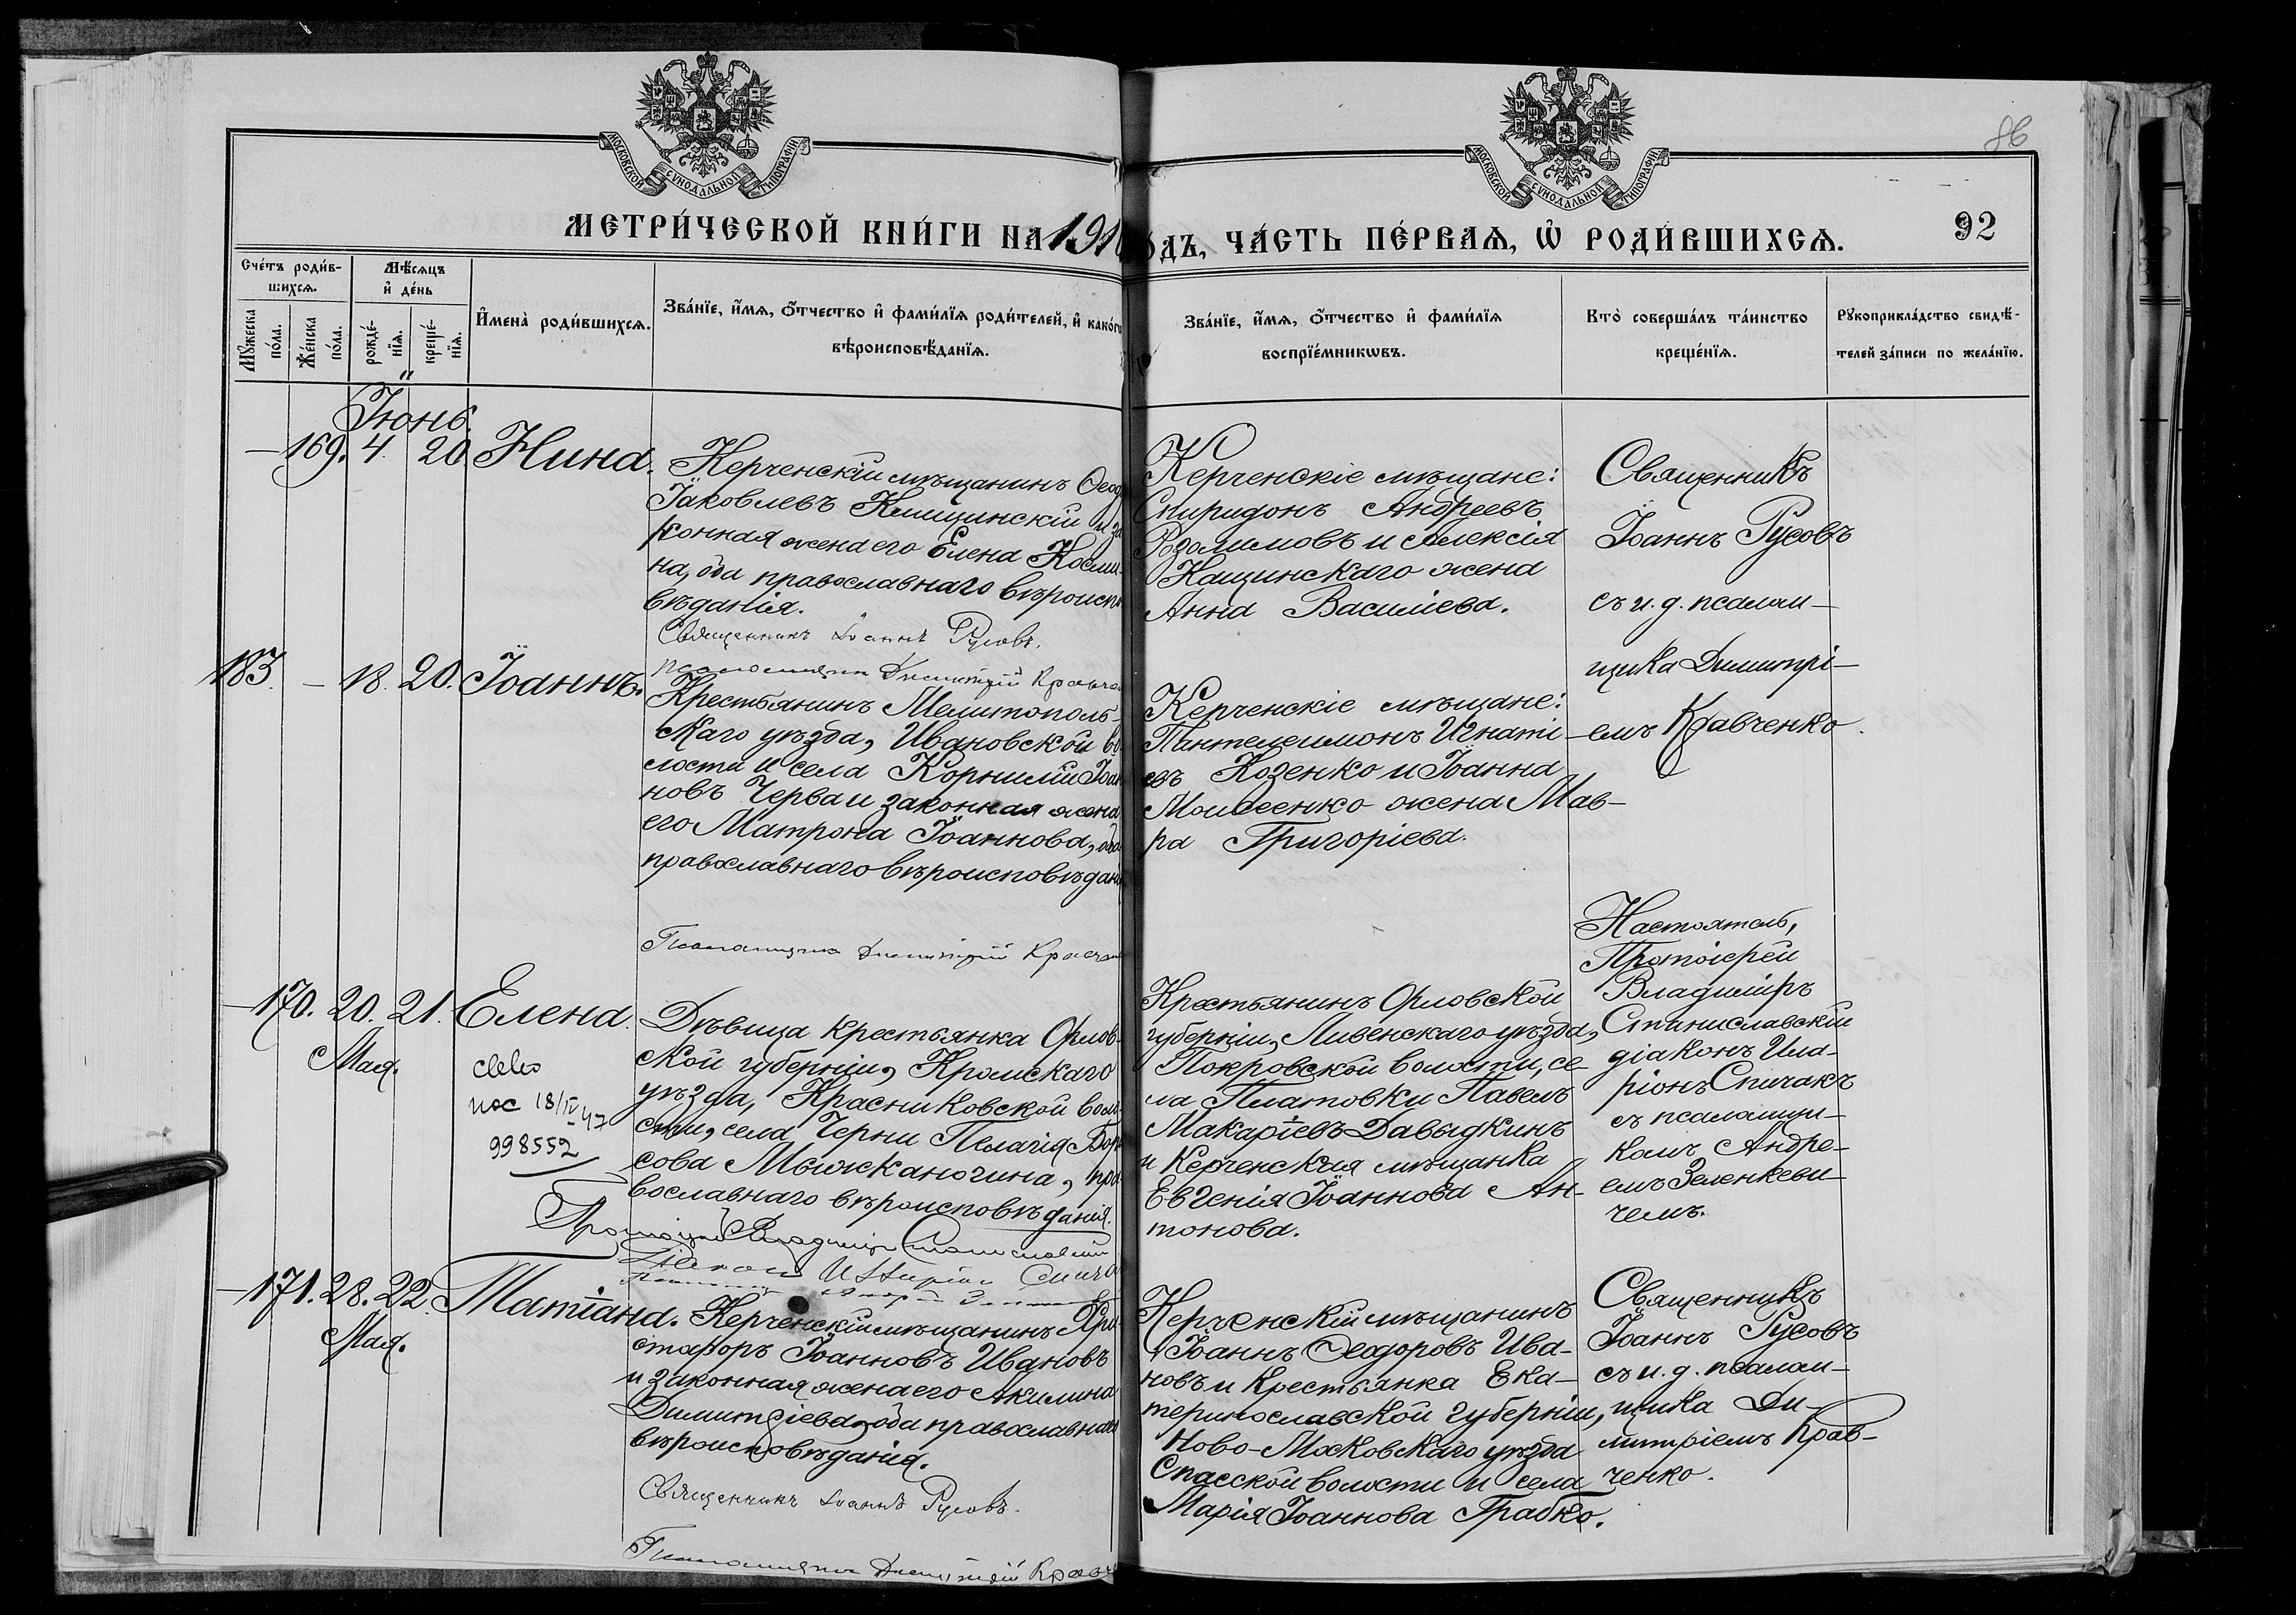 86
МОСКОВСКОЙ СУНОДАЛЬНОЙ ТИПОГРАФІИ
МОСКОВСКОЙ СУНОДАЛЬНОЙ ТИПОГРАФІИ
МЕТРИ́ЧЕСКОЙ КНИ́ГИ НА 191
ОДЪ, ЧА́СТЬ ПЕ́РВАѦ, Ѡ РОДИ́ВШИХСѦ.
92
Сче́тъ роди́в-
шихсѧ.
Мѣ́сѧцъ
и҆ де́нь
Мꙋ́жеска
по́ла.
Же́нска
по́ла.
рожде́-
нїѧ.
креще́-
нїѧ.
И҆мена̀ роди́вшихсѧ.
Зва́нїе, и҆́мѧ, ѻ҆́тчество и҆ фами́лїѧ роди́телей, и҆ како́гѡ
вѣроисповѣ́данїѧ.
Зва́нїе, и҆́мѧ, ѻ҆́тчество и҆ фами́лїѧ
воспрїе́мникѡвъ.
Кто̀ соверша́лъ та́инство
креще́нїѧ.
Рꙋкоприкла́дство свидѣ́-
телей за́писи по жела́нїю.
Іюнь.
169. 4. 20. Нина.
Керченскій мѣщанинъ Ѳеод
Іаковлевъ Клищинскій и за
конная жена его Елена Косми-
на, оба православнаго вѣроиспо
вѣданія.
Священникъ Іоаннъ Русовъ.
псаломщика Димитрій Кравче
Керченскіе мѣщане:
Спиридонъ Андреевъ
Розолимовъ и Алексія
Кащинскаго жена
Анна Василіева.
Священникъ
Іоаннъ Русовъ
съ и. д. псалом-
щика Димитрі-
емъ Кравченко.
183. — 18. 20. Іоаннъ.
Крестьянинъ Мелитополь-
скаго уѣзда, Ивановской во-
лости и села Корнилій Іоан
новъ Черва и законная жена
его Матрона Іоаннова, оба
православнаго вѣроисповѣдан
Псаломщика Димитрій Кравчен
Керченскіе мѣщане:
Пантелеимонъ Игнаті-
евъ Козенко и Іоанна
Моисеенко жена Мав-
ра Григоріева.
170. 20. 21. Елена.
Мая.
св-во
18/IV 47
998552
Дѣвица крестьянка Орлов-
ской губерніи, Кромскаго
уѣзда, Красниковской воло-
сти, села Черни Пелагія Бори
сова Мышканогина, пра
вославнаго вѣроисповѣданія.
Протоіерей Владиміръ Станиславскій
Діаконъ Иларіонъ Спича
Крестьянинъ Орловской
губерніи, Ливенскаго уѣзда,
Покровской волости, се-
ла Платовки Павелъ
Макаріевъ Давыдкинъ
и Керченская мѣщанка
Евгенія Іоаннова Ан-
тонова.
Настоятель,
Протоіерей
Владиміръ
Станиславскій
діаконъ Ила-
ріонъ Спичакъ
съ псаломщи-
комъ Андре-
емъ Зеленкеви-
чемъ.
171. 28. 22. Татіана.
Мая.
Керченскій мѣщанинъ Хри-
стофоръ Іоанновъ Ивановъ
и законная жена его Акилина
Димитріева, оба православнаго
вѣроисповѣданія.
Священникъ Іоаннъ Русовъ.
Псаломщика Димитрій Кравч
Керченскій мѣщанинъ
Іоаннъ Ѳеодоровъ Ива-
новъ и крестьянка Ека-
теринославской губерніи,
Ново-Московскаго уѣзда
Спасской волости и села
Марія Іоаннова Грабко.
Священникъ
Іоаннъ Русовъ
съ и. д. псалом-
щика Ди-
митріемъ Крав-
ченко.